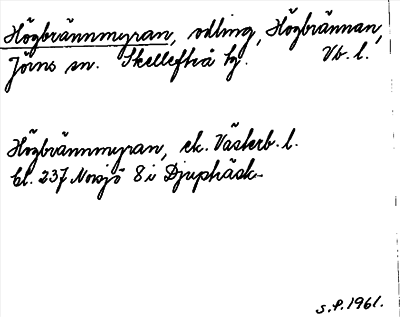 Högbrännmyran, odling, Högbrännan,
Jörns sn. Skellefteå tg. Vb. l.
Högbrännmyran, ek. Västerb. l.
Bl. 237 Norsjö 8 i Djupträsk
S.P. 1961.